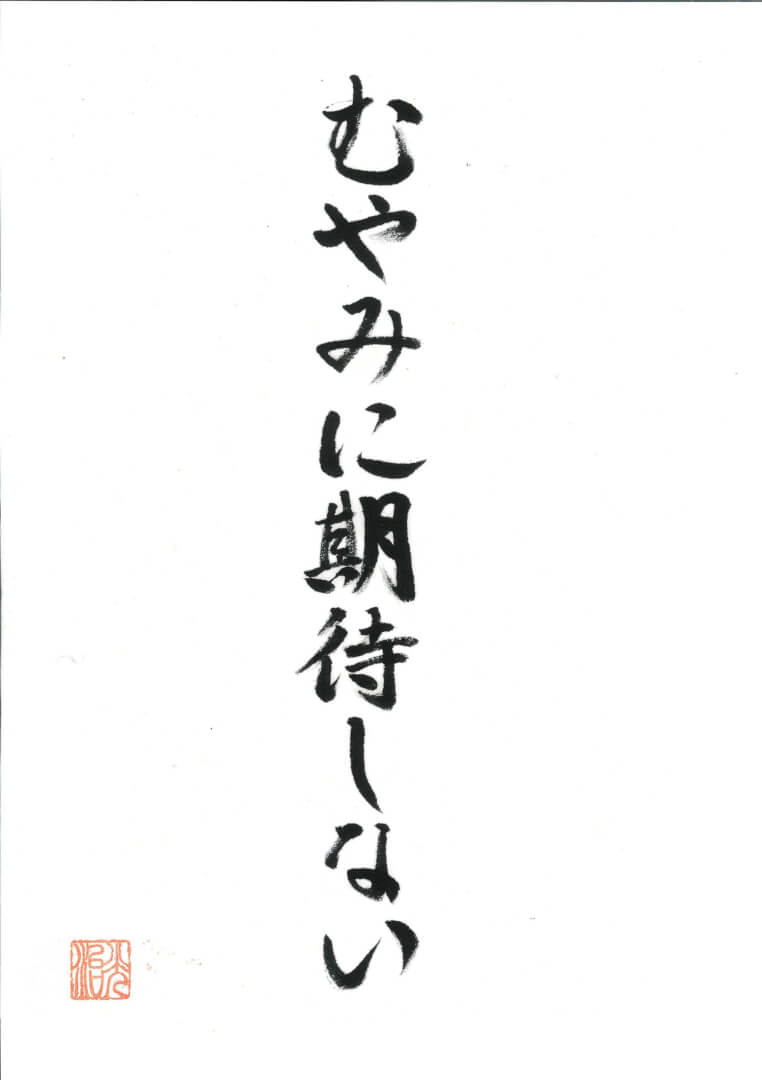 むやみに期待しない